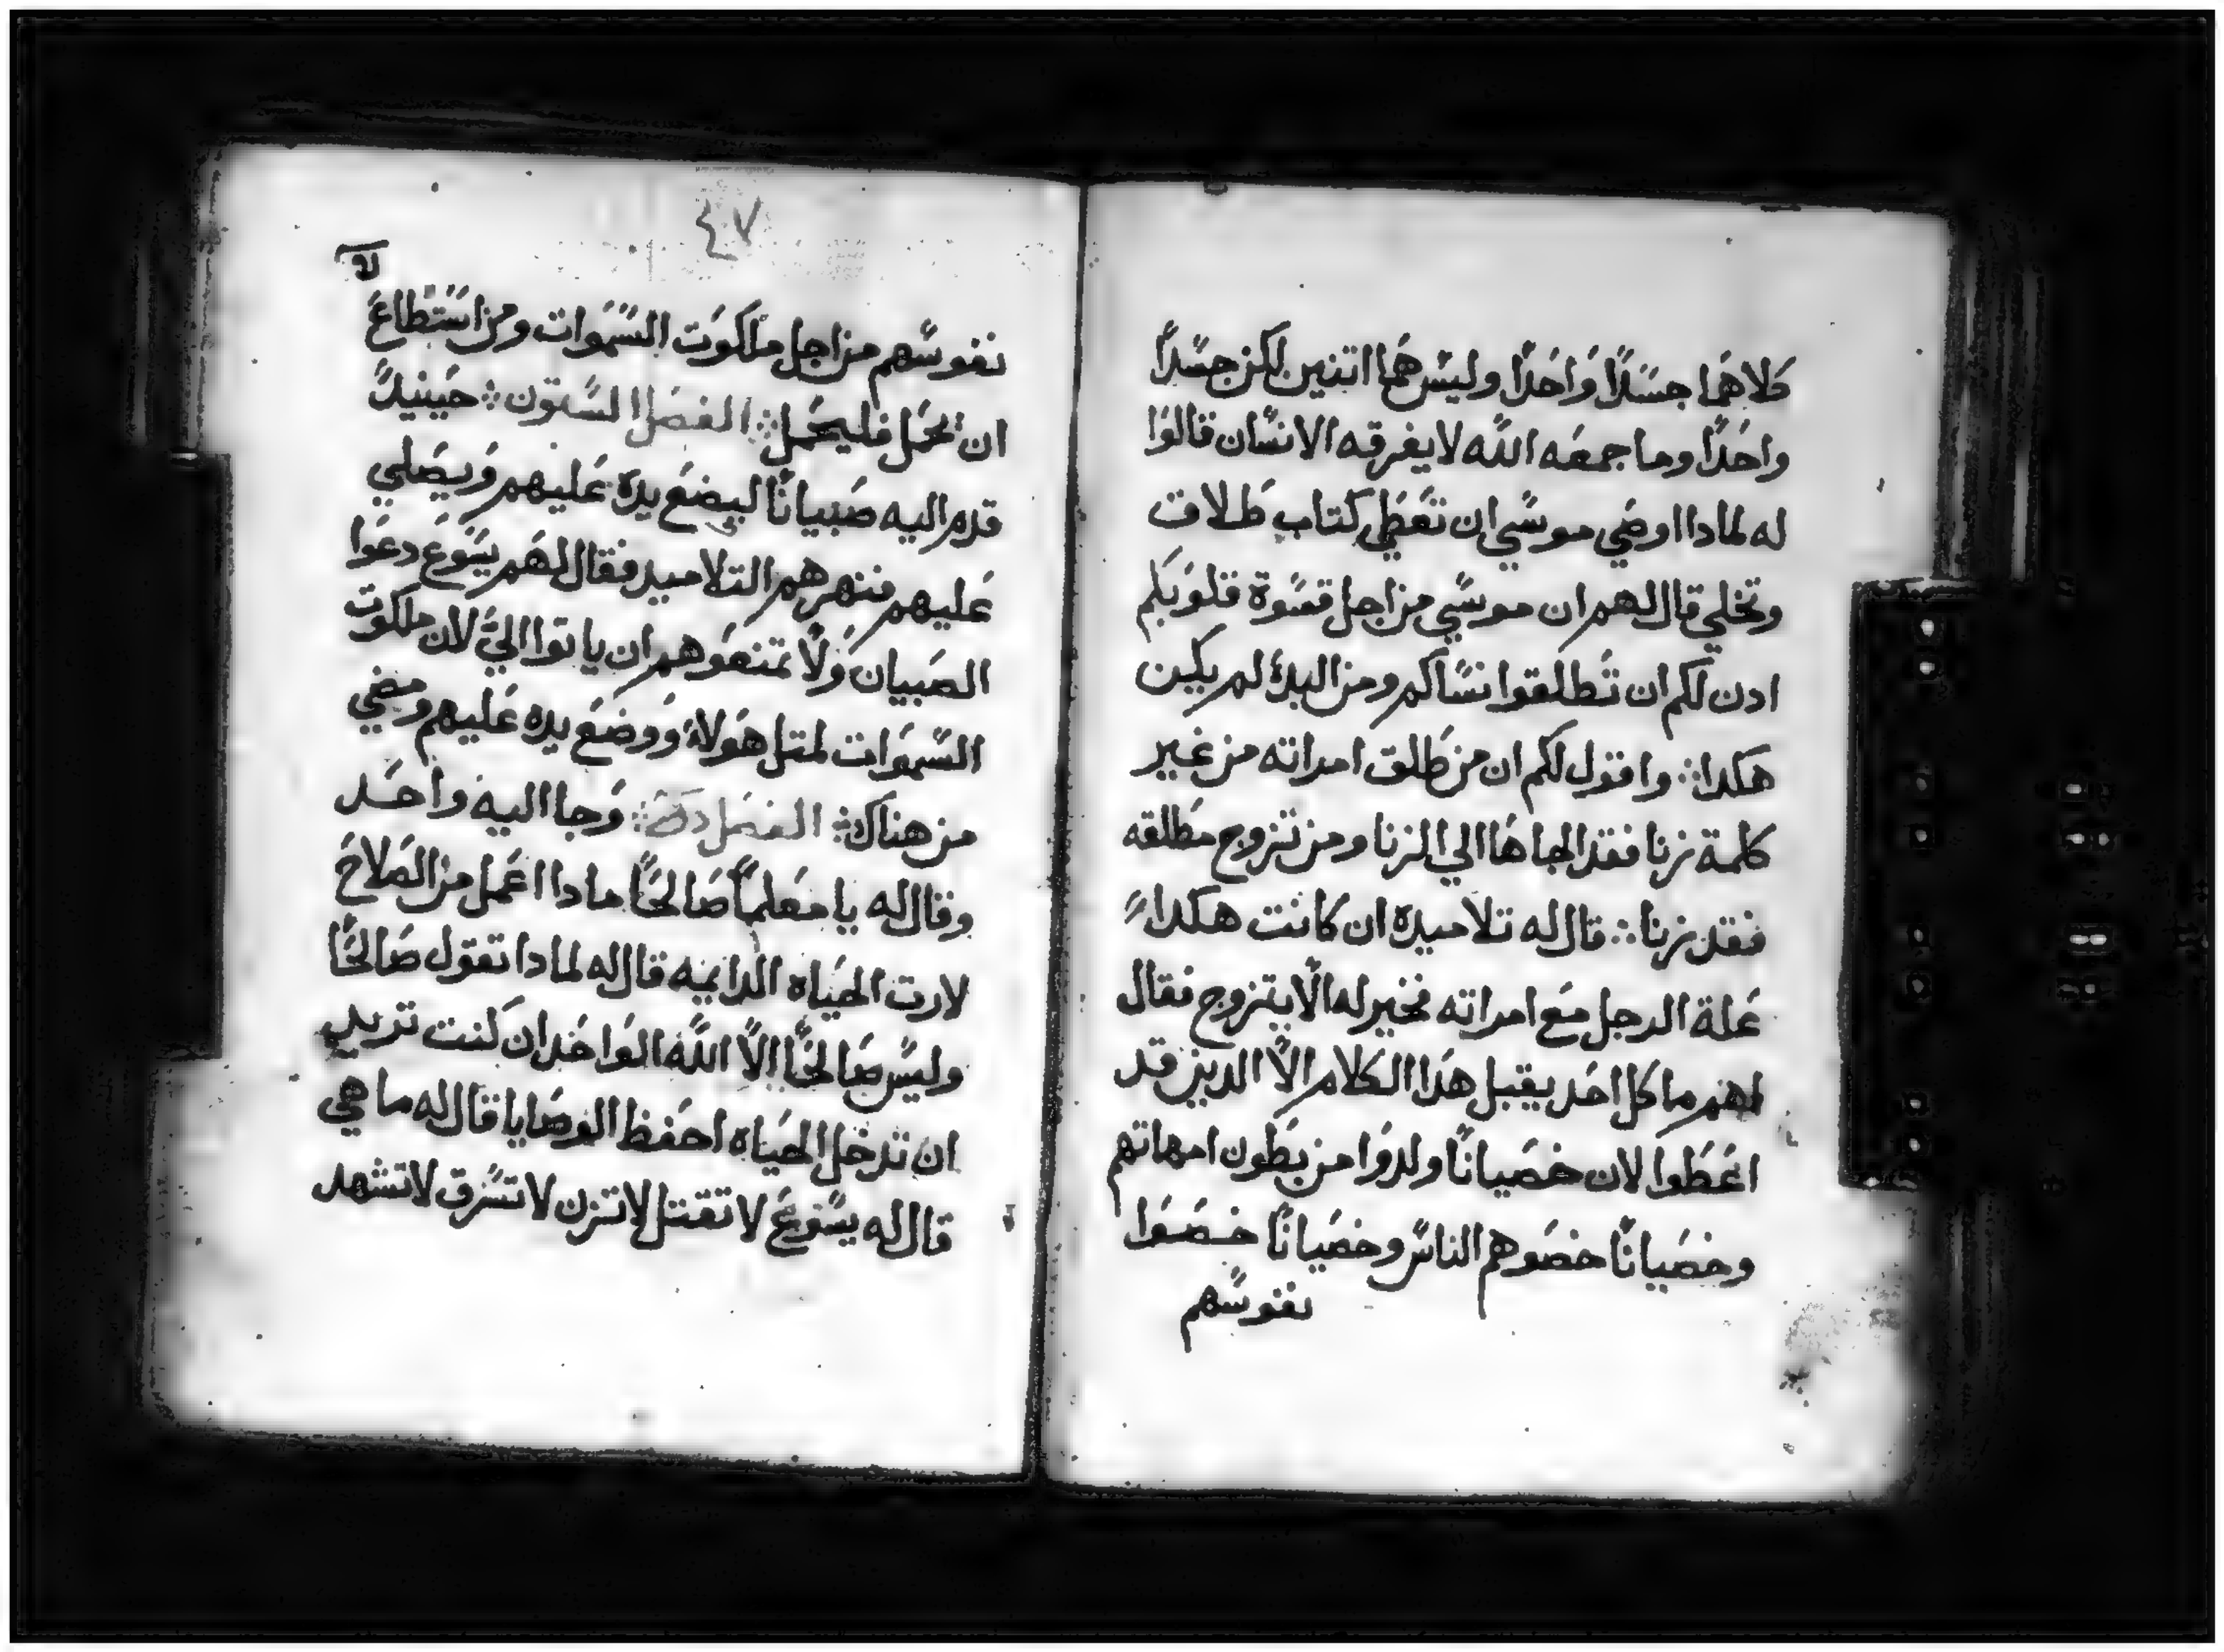 كلاهما جسدًا وَاحَدًا وليسَ همَا اتنين لكن جسَدًا
واحَدًا وما جمعَه اللَّه لا يفرقه الانسَّان قالوَا
له لمادا اوصَي موسَّي ان تعَطَي كتاب طَلاق
وتخلي قال لهم ان موسَّي من اجل قسَّوة قلوَبكم
ادن لكم ان تَطلقوا نسَّاكم ومن البدءُ لم يكن
هكدا ⁘ واقول لكم ان من طَلق امراته من غَير
كلمة زنا فقد الجاهَا الي الزنا ومن تزوج مطَلقه
فقد زنا ⁘ قال له تلاميده ان كانت هكدا
عَلة الرجل مَع امراته فخير له الَّا يتزوج فقال
لهم ما كل احَد يقبل هَدا الكلام الَّا الدين قد
اعَطَوا لان خصَيانًا ولدوَا من بطَون امهاتهم
وخصَيانًا خصَوهم الناسَّ وخصَيانًا خصَوَا
نفوسَّهم
٤٧
نفوسَّهم من اجل ملكوَت السَّمَوات ومن اسَّتطَاعَ
ان يحَمل فليحَمل ⁘ الفصَل السَّتون ⁘ حَينيدًّ
قدم اليه صَبيانًا ليضَع يده عَليهم وَيصَلي
عَليهم فنهرهم التلاميد فقال لهَم يسَّوعَ دعَوا
الصَبيان وَلَا تمنعَوهم ان ياتوا اليَّ لان ملكوت
السَّموَات لمتل هَولاءُ وَوضَعَ يده عَليهم ومضي
من هناك ⁘ الفصَل ⁘ وَجا اليه واحَد
وقال له يا معَلمًا صَالحَّا مادا اعَمل من الصَلاحَ
لارت الحَياه الدايمه قال له لمادا تقول صَالحَّا
وليسَّ صَالحَّا الَّا اللَّه الوَاحَد ان كَنت تريد
ان تدخل الحَياه احَفظ الوصَايا قال له ما هي
قال له يسَّوعَ لا تقتل لا تزن لا تسَّرق لا تشهد